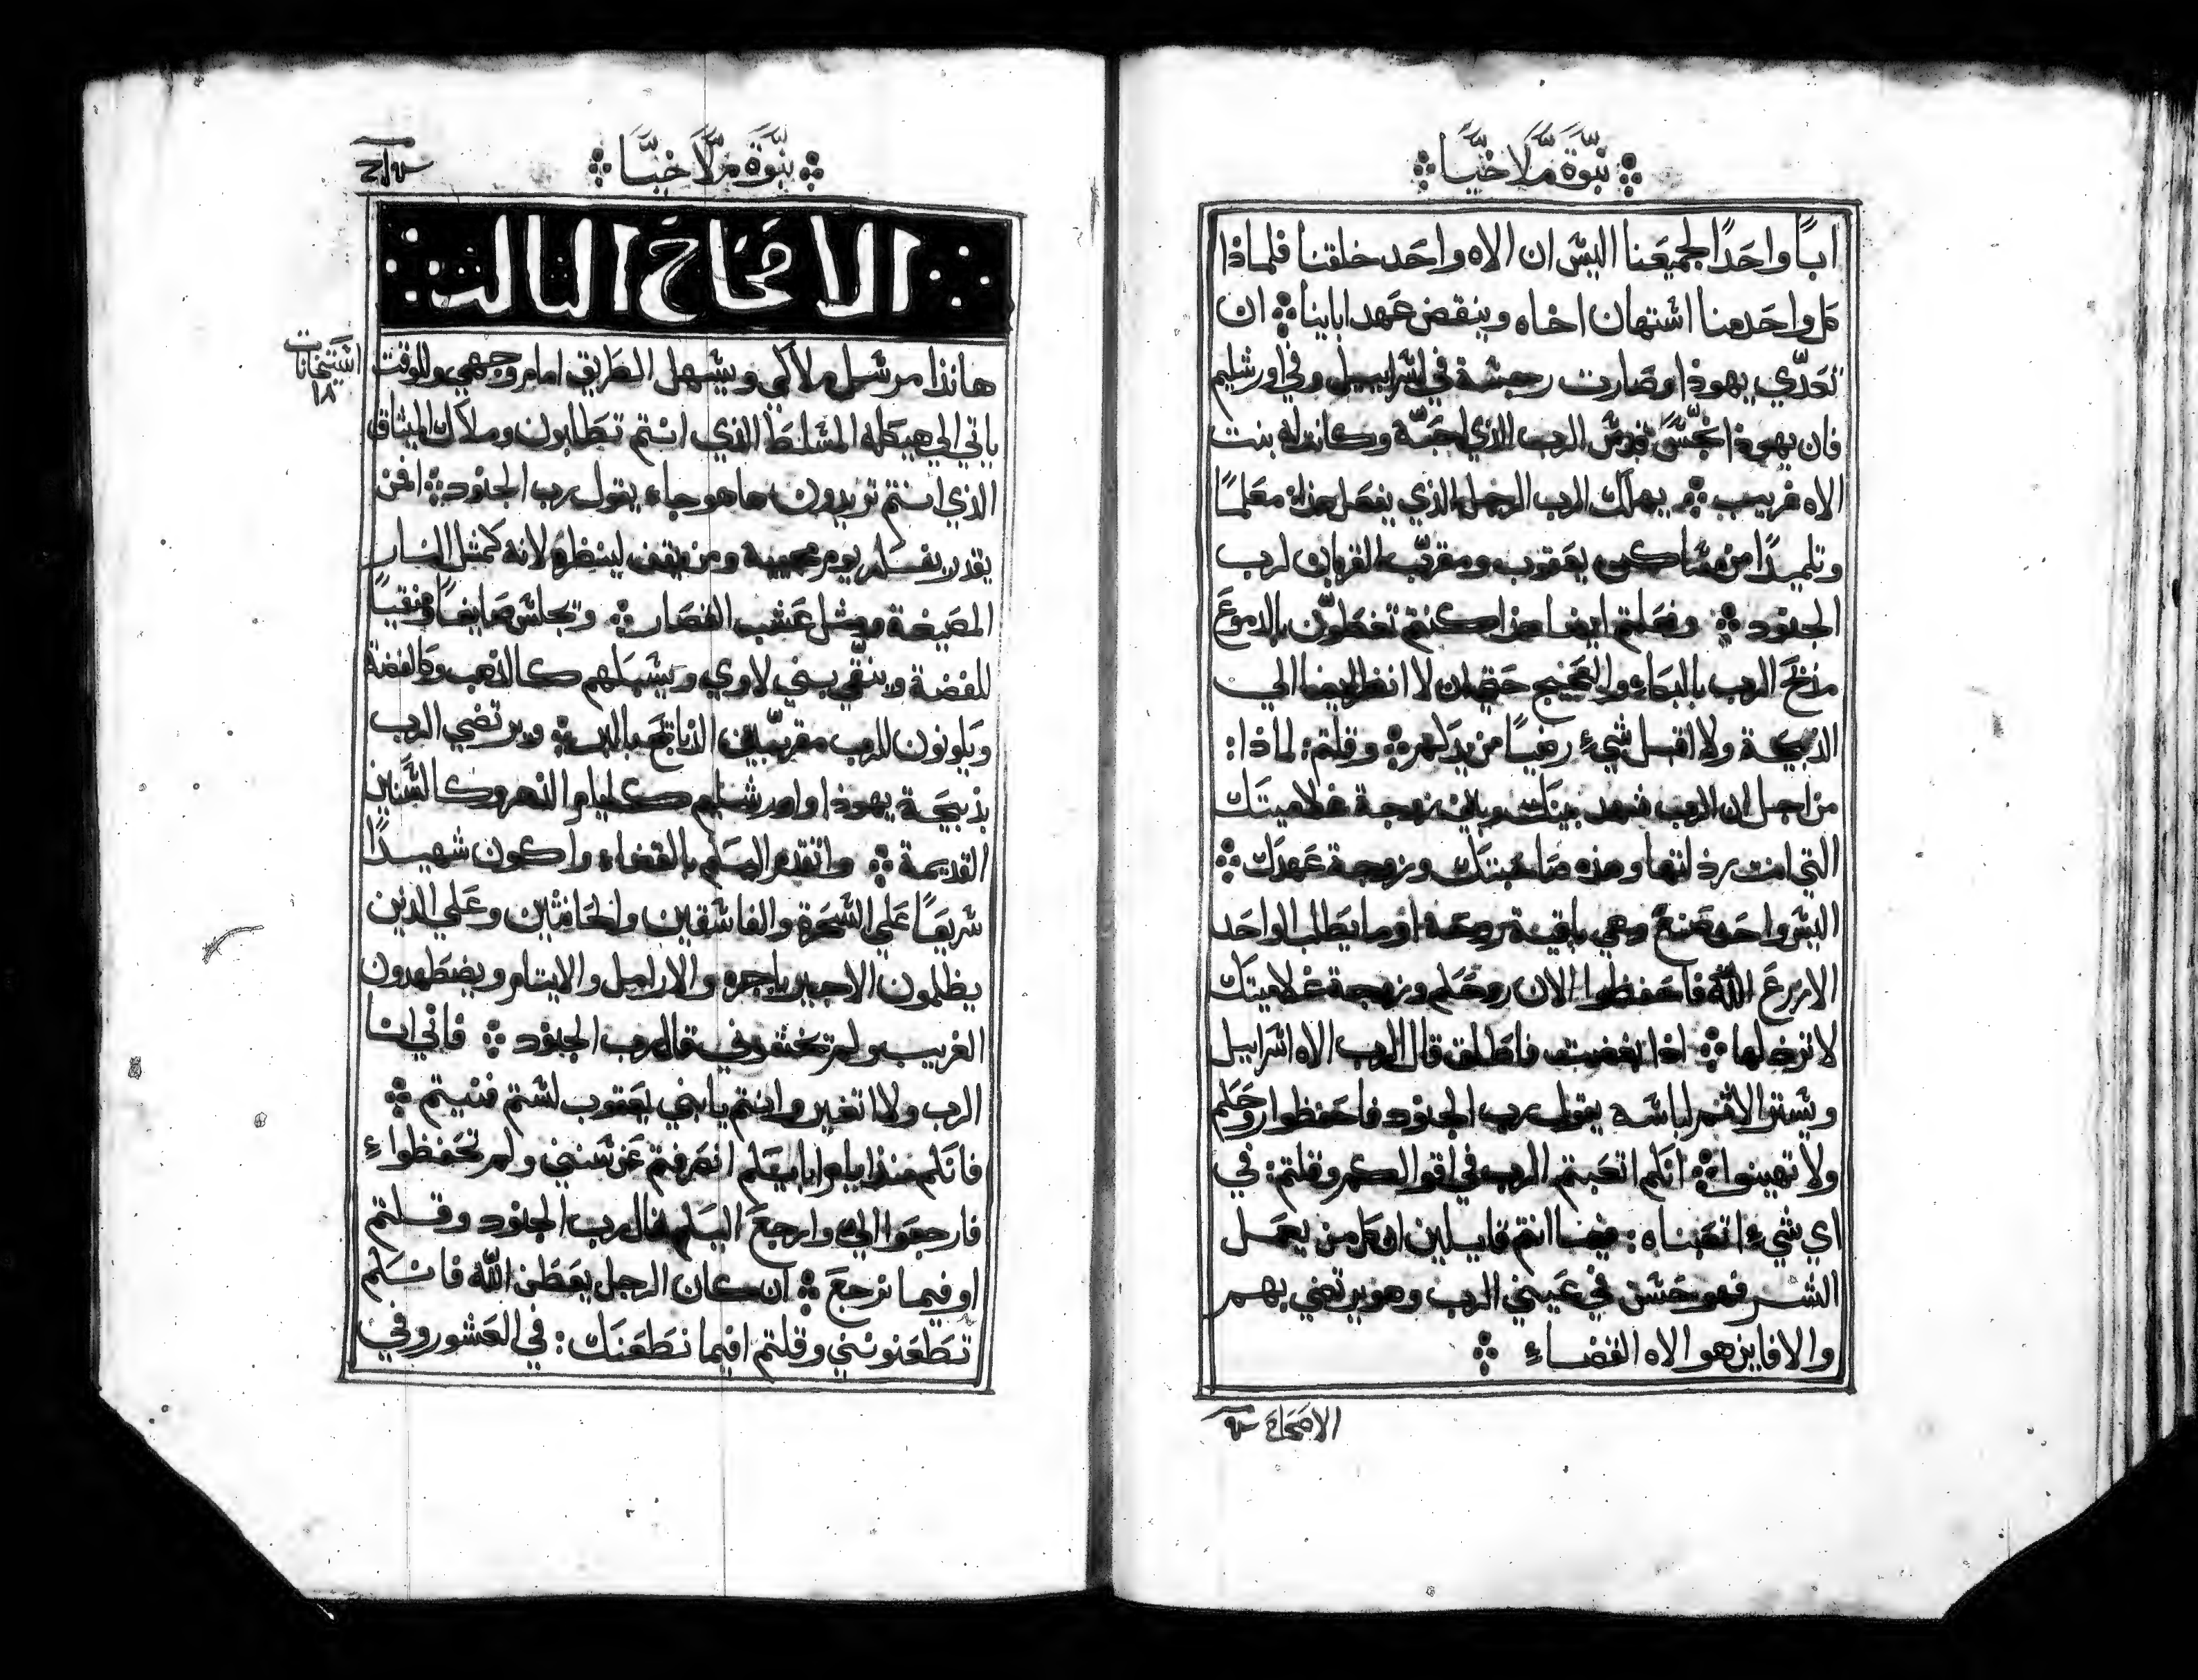 نبّوة مّلاخيّا
ابًا واحَدًا لجميعَنا اليسَ ان الاه واحَد خلقنا فلماذا
كل واحَد منا استهان اخاه وينقض عَهد ابابنا ان
تعَدّي يهوذا وصَارت رجسَة في اسَراييل وفي اورشليم
فان يهوذا نجّسَ قدسَ الرب الذي احَبّه وكانت له بنت
الاه غريب يهلك الرب الرجل الذي يفعَل هذا معَلمًا
وتلميدًا من مسَاكن يعَقوب ومقرّب القربان لرب
الجنود وفعَلتم ايضا هذا كنتم تغطَوّن بالدموعَ
مذبحَ الرب بالبكاء والعَجيج حَتي ان لا انظر ايضا الي
الدبيحة ولا اقبل شيءٍ رضيًا من يدكم وقلتم لماذا
من اجل ان الرب شهد بينك وبين زوجة غلاميتك
التي انت رذلتها وهذه صَاحَبتك وزوجة عَهدك
اليسَ واحَد صَنعَ وهي باقية روحَه او ما يطَلب الواحَد
الا زرعَ اللّه فاحَفظوا الان روحَكم وزوجة غلاميتك
لا ترذلها اذا بغضت فاطَلق قال الرب الاه اسَراييل
ويستر الاثم لباسَه يقول رب الجنود فاحَفظوا روحَكم
ولا تهينوا انكم اتعَبتم الرب في اقوالكم وقلتم في
اي شيءٍ اتعَبناه فيما انتم قايلين ان كل من يعَمل
الشر فهو حَسَن في عَيني الرب وهو يرتضي بهم
والا فاين هو الاه القضاءٍ
الاصَحاحَ ٣
نبّوة مّلاخيّا
الاصحاح الثالث
هانذا مرسَل ملاكي ويسَهل الطَريق امام وجهي وللوقت
ياتي الي هيكله المسَلط الذي انتم تطَلبون وملاك الميثاق
الذي انتم تريدون ها هو جاء يقول رب الجنود افمن
يقدر يفتكر يوم مجييه ومن يقف لينظره لانه كمثل النار
المصَيغة ومثل عَشب القصَار ويجلسَ صَايغًا ومنقيًا
للفضة وينقّي بني لاوي ويسَبكهم كالذهب وكالفضة
ويكونون للرب مقرّبين الذبايحَ بالبر ويرتضي الرب
بذبيحَة يهوذا واورشليم كايام الدهر وكالسَنين
القديمة واتقدم اليكم بالقضاء واكون شهيدًا
سَريعَا عَلي السَحَرة والفاسَقين والحَانثين وعَلي الذين
يظلمون الاجير باجره والارامل والايتام ويضطَهدون
الغريب ولم تخشوني قال رب الجنود فاني انا
الرب ولا اتغير وانتم يا بني يعَقوب لسَتم فنيتم
فانكم منذ ايام اباييكم انصَرفتم عَن سَنني ولم تحَفظواءِ
فارجعَوا الي وارجعَ اليكم قال رب الجنود وقلتم
او فيما نرجعَ ان كان الرجل يعَطَن اللّه فانكم
تطَعَنونني وقلتم افيما نطَعَنك في العَشور وفي
اسَتيحَانات
١٨